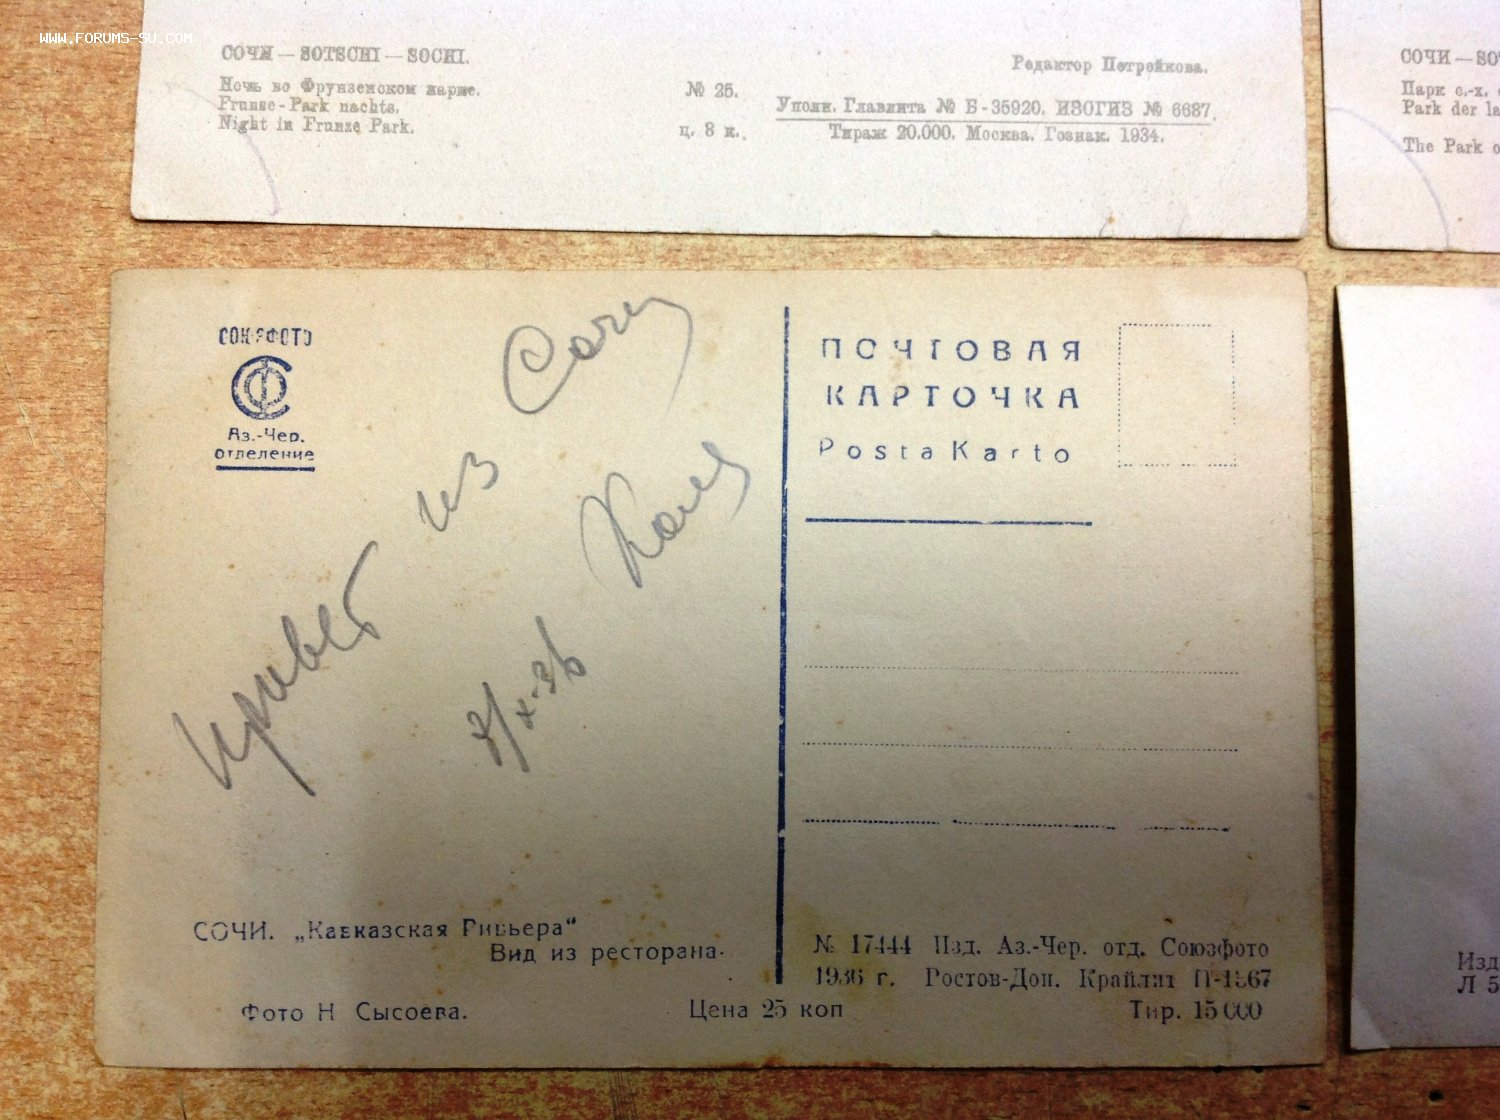 WWW.FORUMS-SU.COM
СОЧИ — SOTSCHI — SOCHI.
Ночь во Фрунзенском парке.
Frunse-Park nachts.
Night in Frunze Park.
№ 25.
ц. 8 к.
Редактор Петрейкова.
Уполн. Главлита № Б-35920. ИЗОГИЗ № 6687.
Тираж 20.000. Москва. Гознак. 1934.
СОЧИ — SO
Парк с.-х.
Park der la
The Park o
СОЮЗФОТО
СФ
Аз.-Чер.
отделение
Привет из Сочи
Коля
ПОЧТОВАЯ
КАРТОЧКА
Posta Karto
СОЧИ. „Кавказская Ривьера"
Вид из ресторана.
Фото Н Сысоева.
Цена 25 коп
№ 17444 Изд. Аз.-Чер. отд. Союзфото
1936 г. Ростов-Дон. Крайлит П-1567
Тир. 15 000
Изд
Л 5